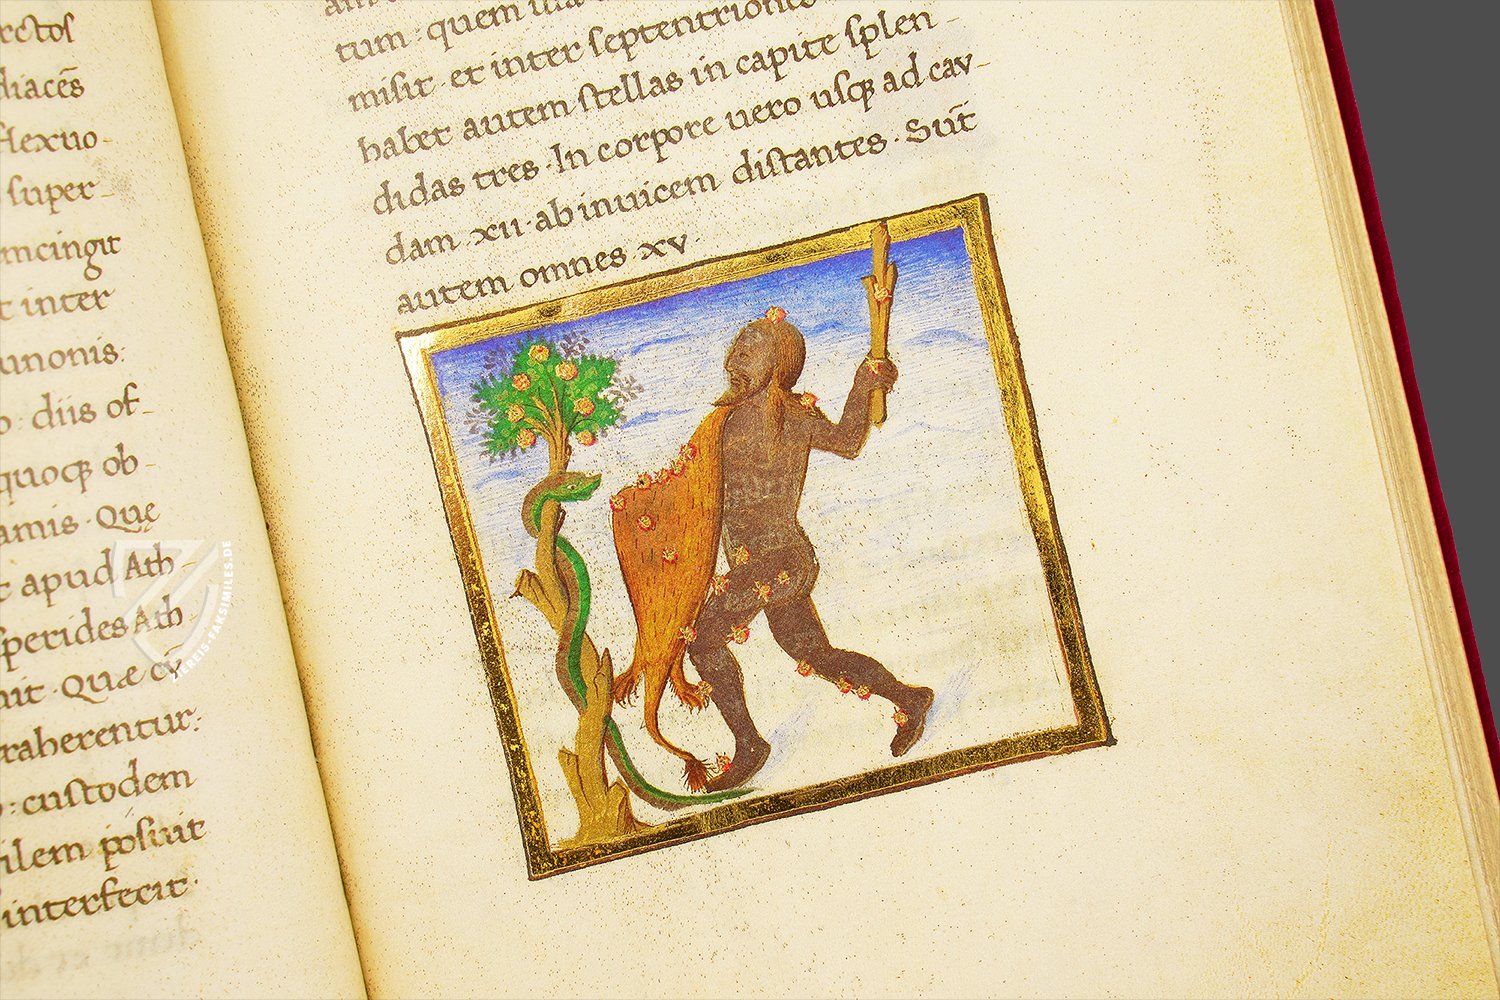 rectos
diacẽs
flexuo-
super-
incingit
t inter
unonis:
o: diis of-
quoq; ob-
amis · Quę
t apud Ath-
sperides Ath-
uit · Quæ cy-
raherentur:
o: custodem
ilem posiuit
interfecit ·
tum: quem
misit · et inter septentriones
habet autem stellas in capite splen-
didas tres · In corpore uero usq; ad cav-
dam · xii · ab inuicem distantes · Sũt
autem omnes · xv ·
ZIEREIS-FAKSIMILES.DE